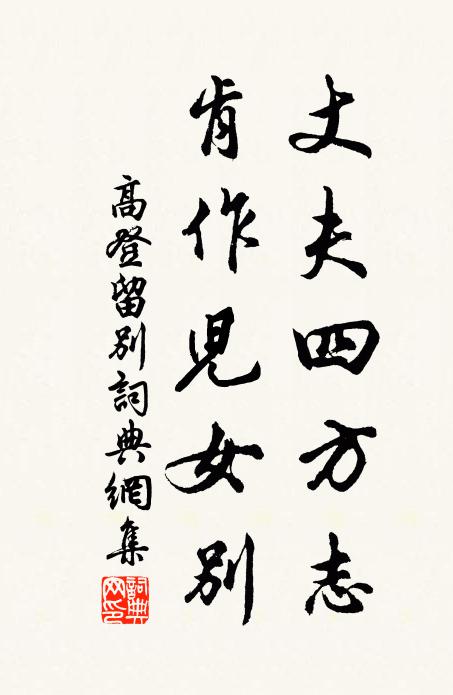 丈夫四方志
肯作児女別
高登留別詞典網集
詞典
网印